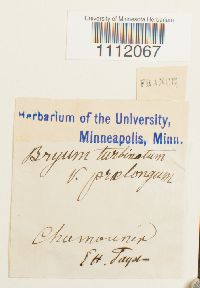 University of Minnesota Herbarium
1112067
FRANCE
Herbarium of the University,
Minneapolis, Minn.
Bryum turbinatum
v. prolongum
Chamounix